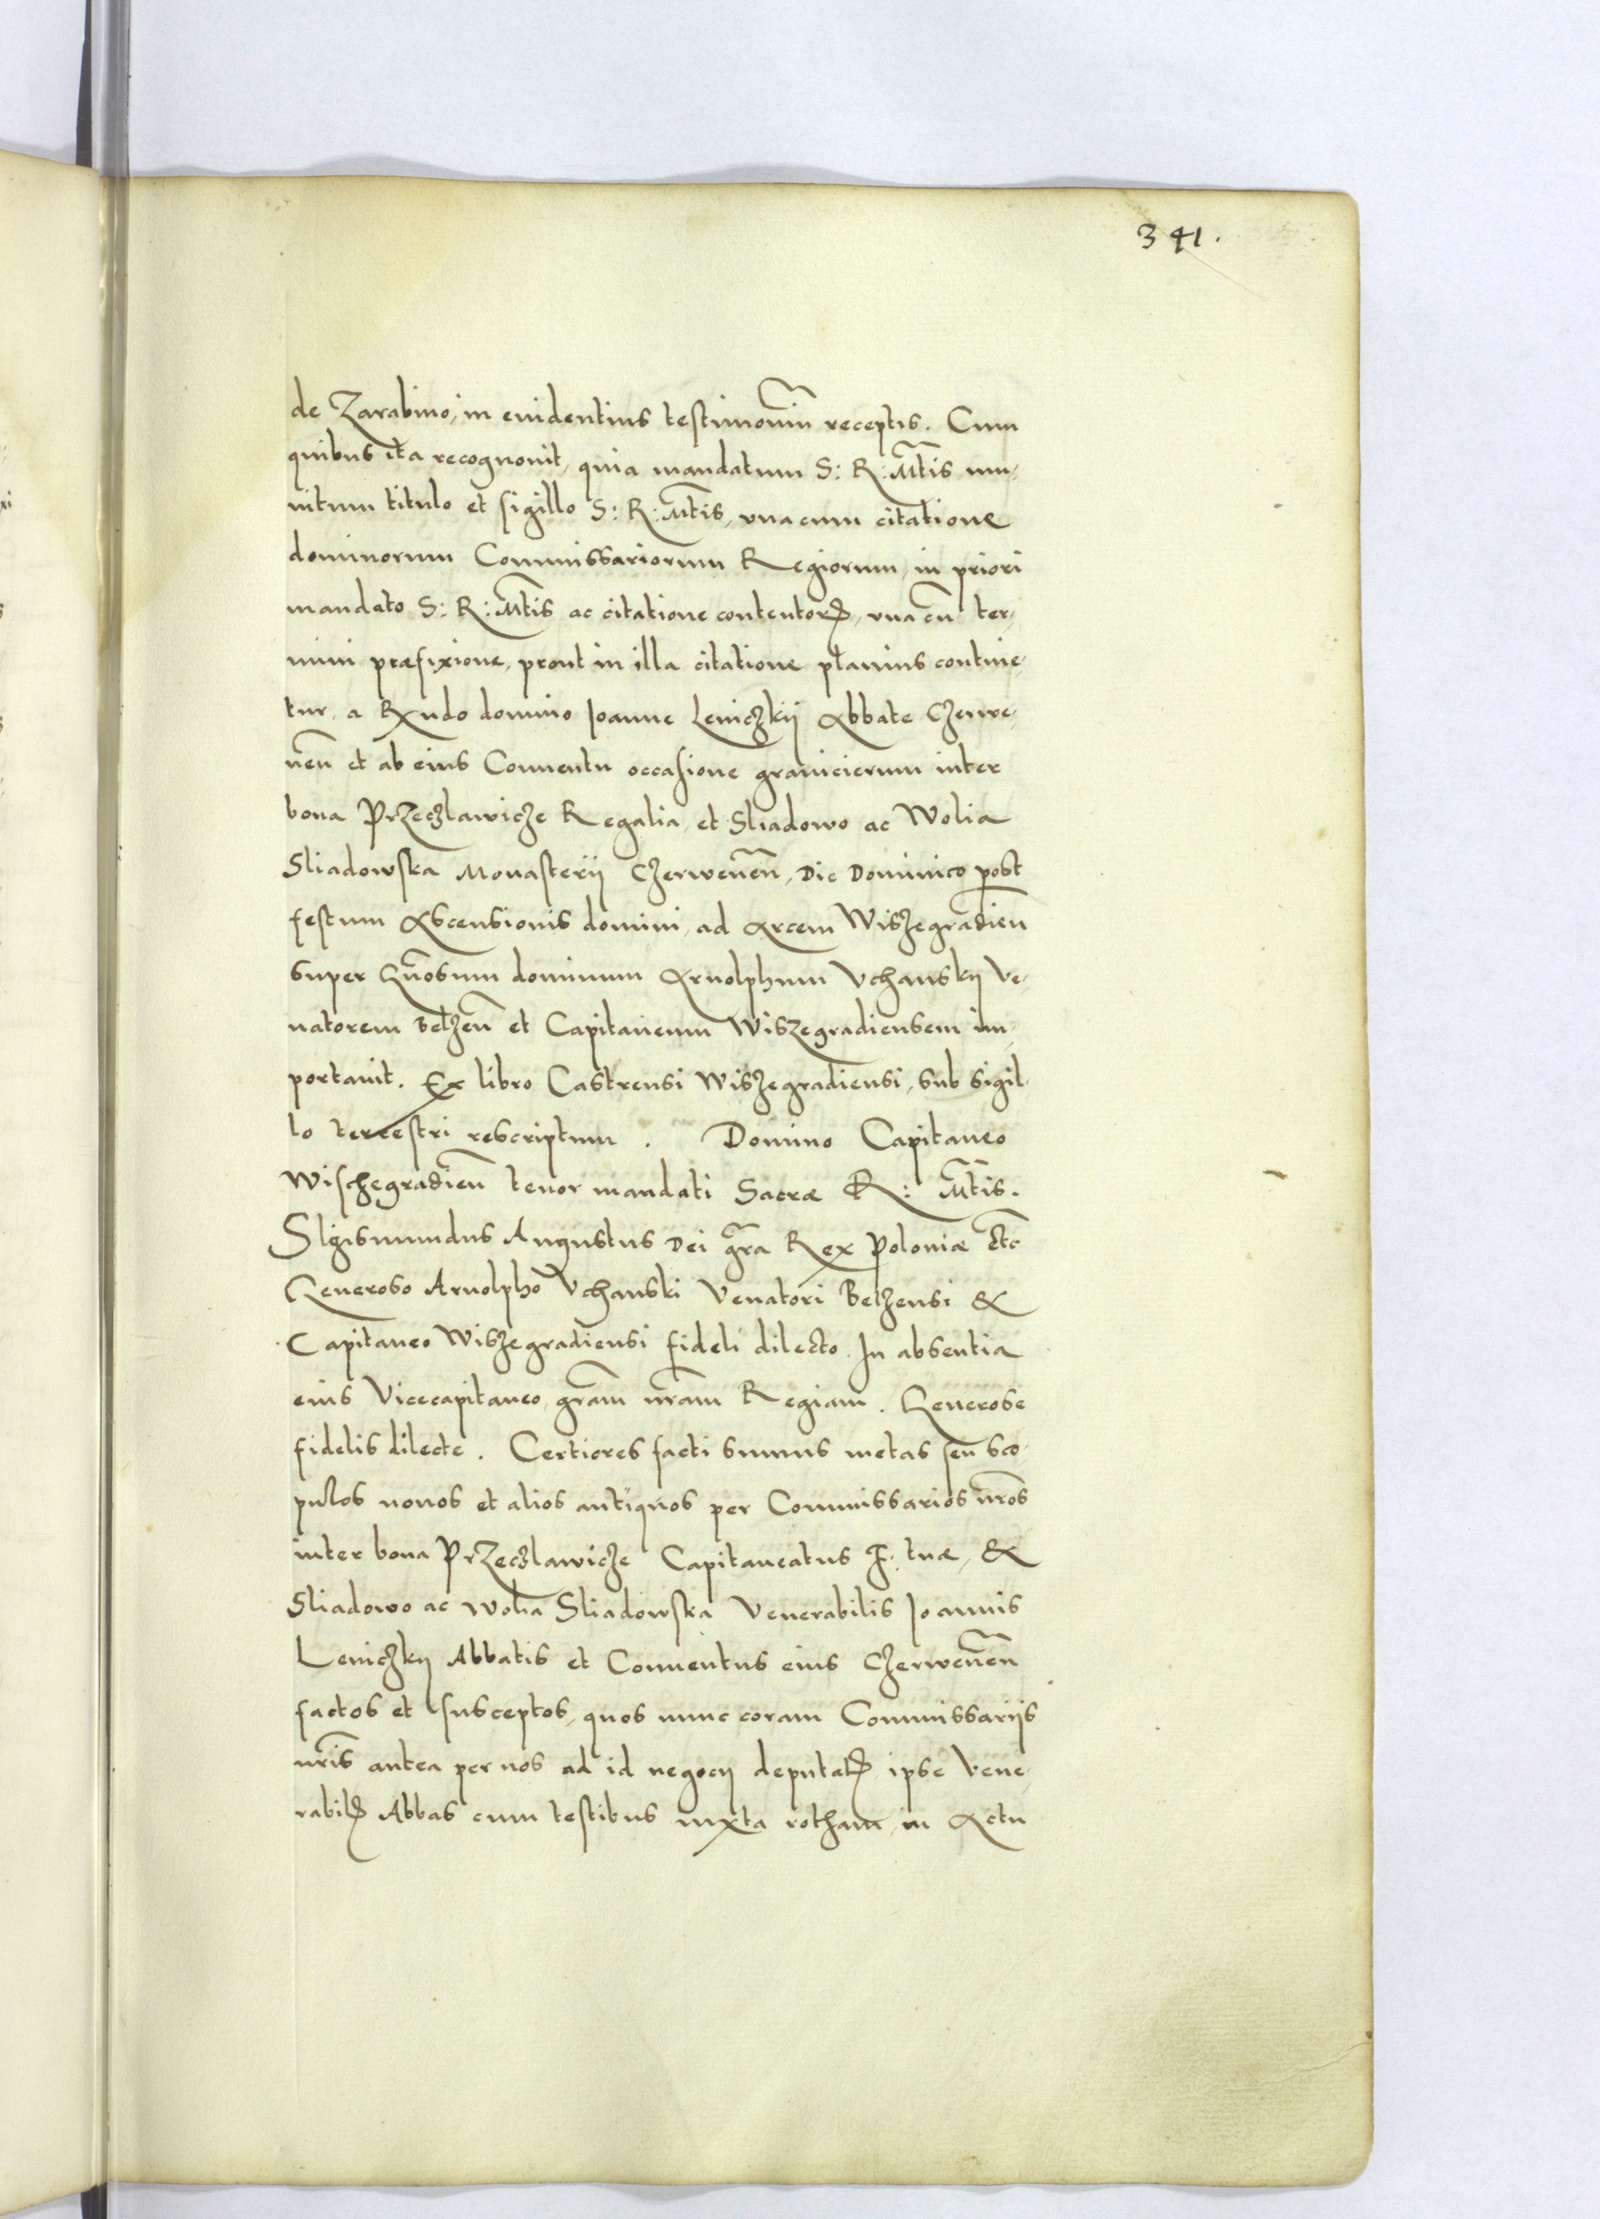 341.
de Zarabino, in euidentius testimoniũ receptis. Cum
quibus ita recognouit, quia mandatum S: R: Mtis mu-
nitum titulo et sigillo S: R: Mtis, vna cum citatione
dominorum Commissariorum Regiorum, in priori
mandato S: R: Mtis ac citatione contentorꝝ, vna cũ ter-
mini præfixione, prout in illa citatione planius contine-
tur, a Rndo domino Ioanne Leniczkij Abbate Czerwe-
neñ et ab eius Conuentu occasione granicierum inter
bona Przeczlawicze Regalia, et Sliadowo ac Wolia
Sliadowska Monasterij Czerweneñ, Die Dominico post
festum Ascensionis domini, ad Arcem Wiszegradieñ
super Gnosum dominum Arnolphum Vchanskij Ve-
natorem Belzeñ et Capitaneum Wiszegradiensem im-
portauit. Ex libro Castrensi Wiszegradiensi, sub sigil-
lo terrestri rescriptum. Domino Capitaneo
Wischegradieñ tenor mandati Sacræ R: Mtis.
SIgismundus Augustus Dei gra Rex Poloniæ etc
Generoso Arnolpho Vchanski Venatori Belzensi &
Capitaneo Wiszegradiensi fideli dilecto. In absentia
eius Vicecapitaneo gram nram Regiam. Generose
fidelis dilecte. Certiores facti sumus metas seu sco-
pulos nouos et alios antiquos per Commissarios nros
inter bona Przeczlawicze Capitaneatus F. tuæ, &
Sliadowo ac Wolia Sliadowska Venerabilis Ioannis
Leniczkij Abbatis et Conuentus eius Czerweneñ
factos et susceptos, quos nunc coram Commissarijs
nris antea per nos ad id negocij deputatꝭ ipse Vene-
rabilꝭ Abbas cum testibus iuxta rotham, in Actu